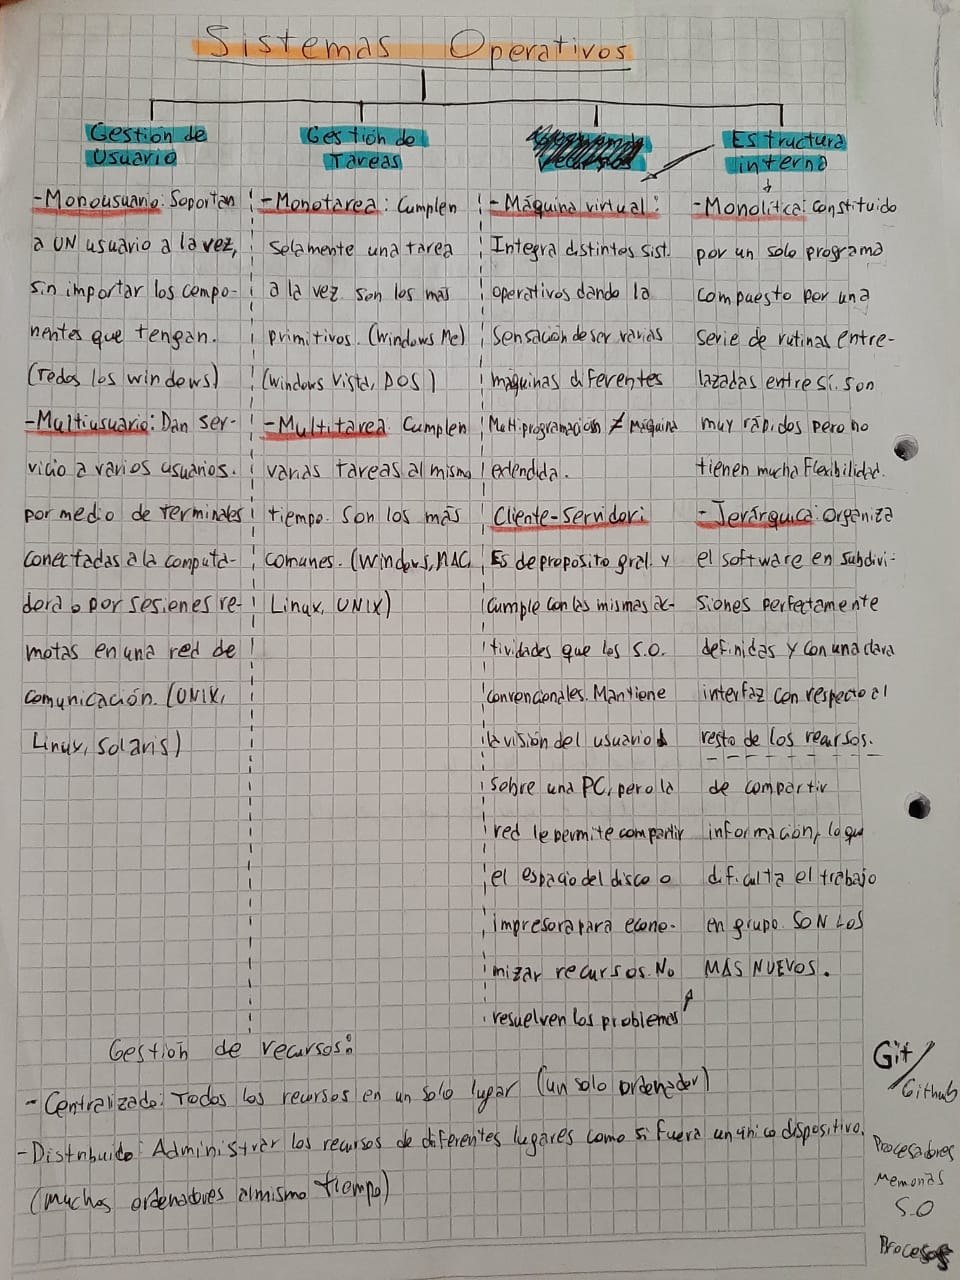 Sistemas Operativos
Gestión de
Usuario
-Monousuario: Soportan
a UN usuario a la vez,
sin importar los compo-
nentes que tengan.
(Todos los windows)
-Multiusuario: Dan ser-
vicio a varios usuarios.
por medio de terminales
conectadas a la computa-
dora o por sesiones re-
motas en una red de
comunicación. (UNIX,
Linux, Solaris)
Gestión de
Tareas
-Monotarea: Cumplen
solamente una tarea
a la vez son los más
primitivos. (Windows Me)
(Windows Vista, DOS)
-Multitarea: Cumplen
varias tareas al mismo
tiempo. Son los más
comunes. (Windows, MAC
Linux, UNIX)
Estructura
interna
-Máquina virtual:
Integra distintos sist.
operativos dando la
sensación de ser varias
máquinas diferentes
Multiprogramación ≠ Máquina
extendida.
Cliente-servidor:
Es de proposito gral. y
cumple con las mismas ac-
tividades que los S.O.
convencionales. Mantiene
la visión del usuario
sobre una PC, pero la
red le permite compartir
el espacio del disco o
impresora para econo-
mizar recursos. No
resuelven los problemas
- Monolítica: constituido
por un solo programa
compuesto por una
serie de rutinas entre-
lazadas entre sí. son
muy rápidos pero no
tienen mucha flexibilidad.
- Jerárquica: Organiza
el software en subdivi-
siones perfectamente
definidas y con una clara
interfaz con respecto al
resto de los recursos.
de compartir
información, lo que
dificulta el trabajo
en grupo. SON LOS
MAS NUEVOS.
Gestión de recursos:
- Centralizado: Todos los recursos en un solo lugar (un solo ordenador)
- Distribuido: Administrar los recursos de diferentes lugares como si fuera un único dispositivo.
(muchos ordenadores al mismo tiempo)
Git/
Github
Procesadores
Memorias
S.O
Procesos